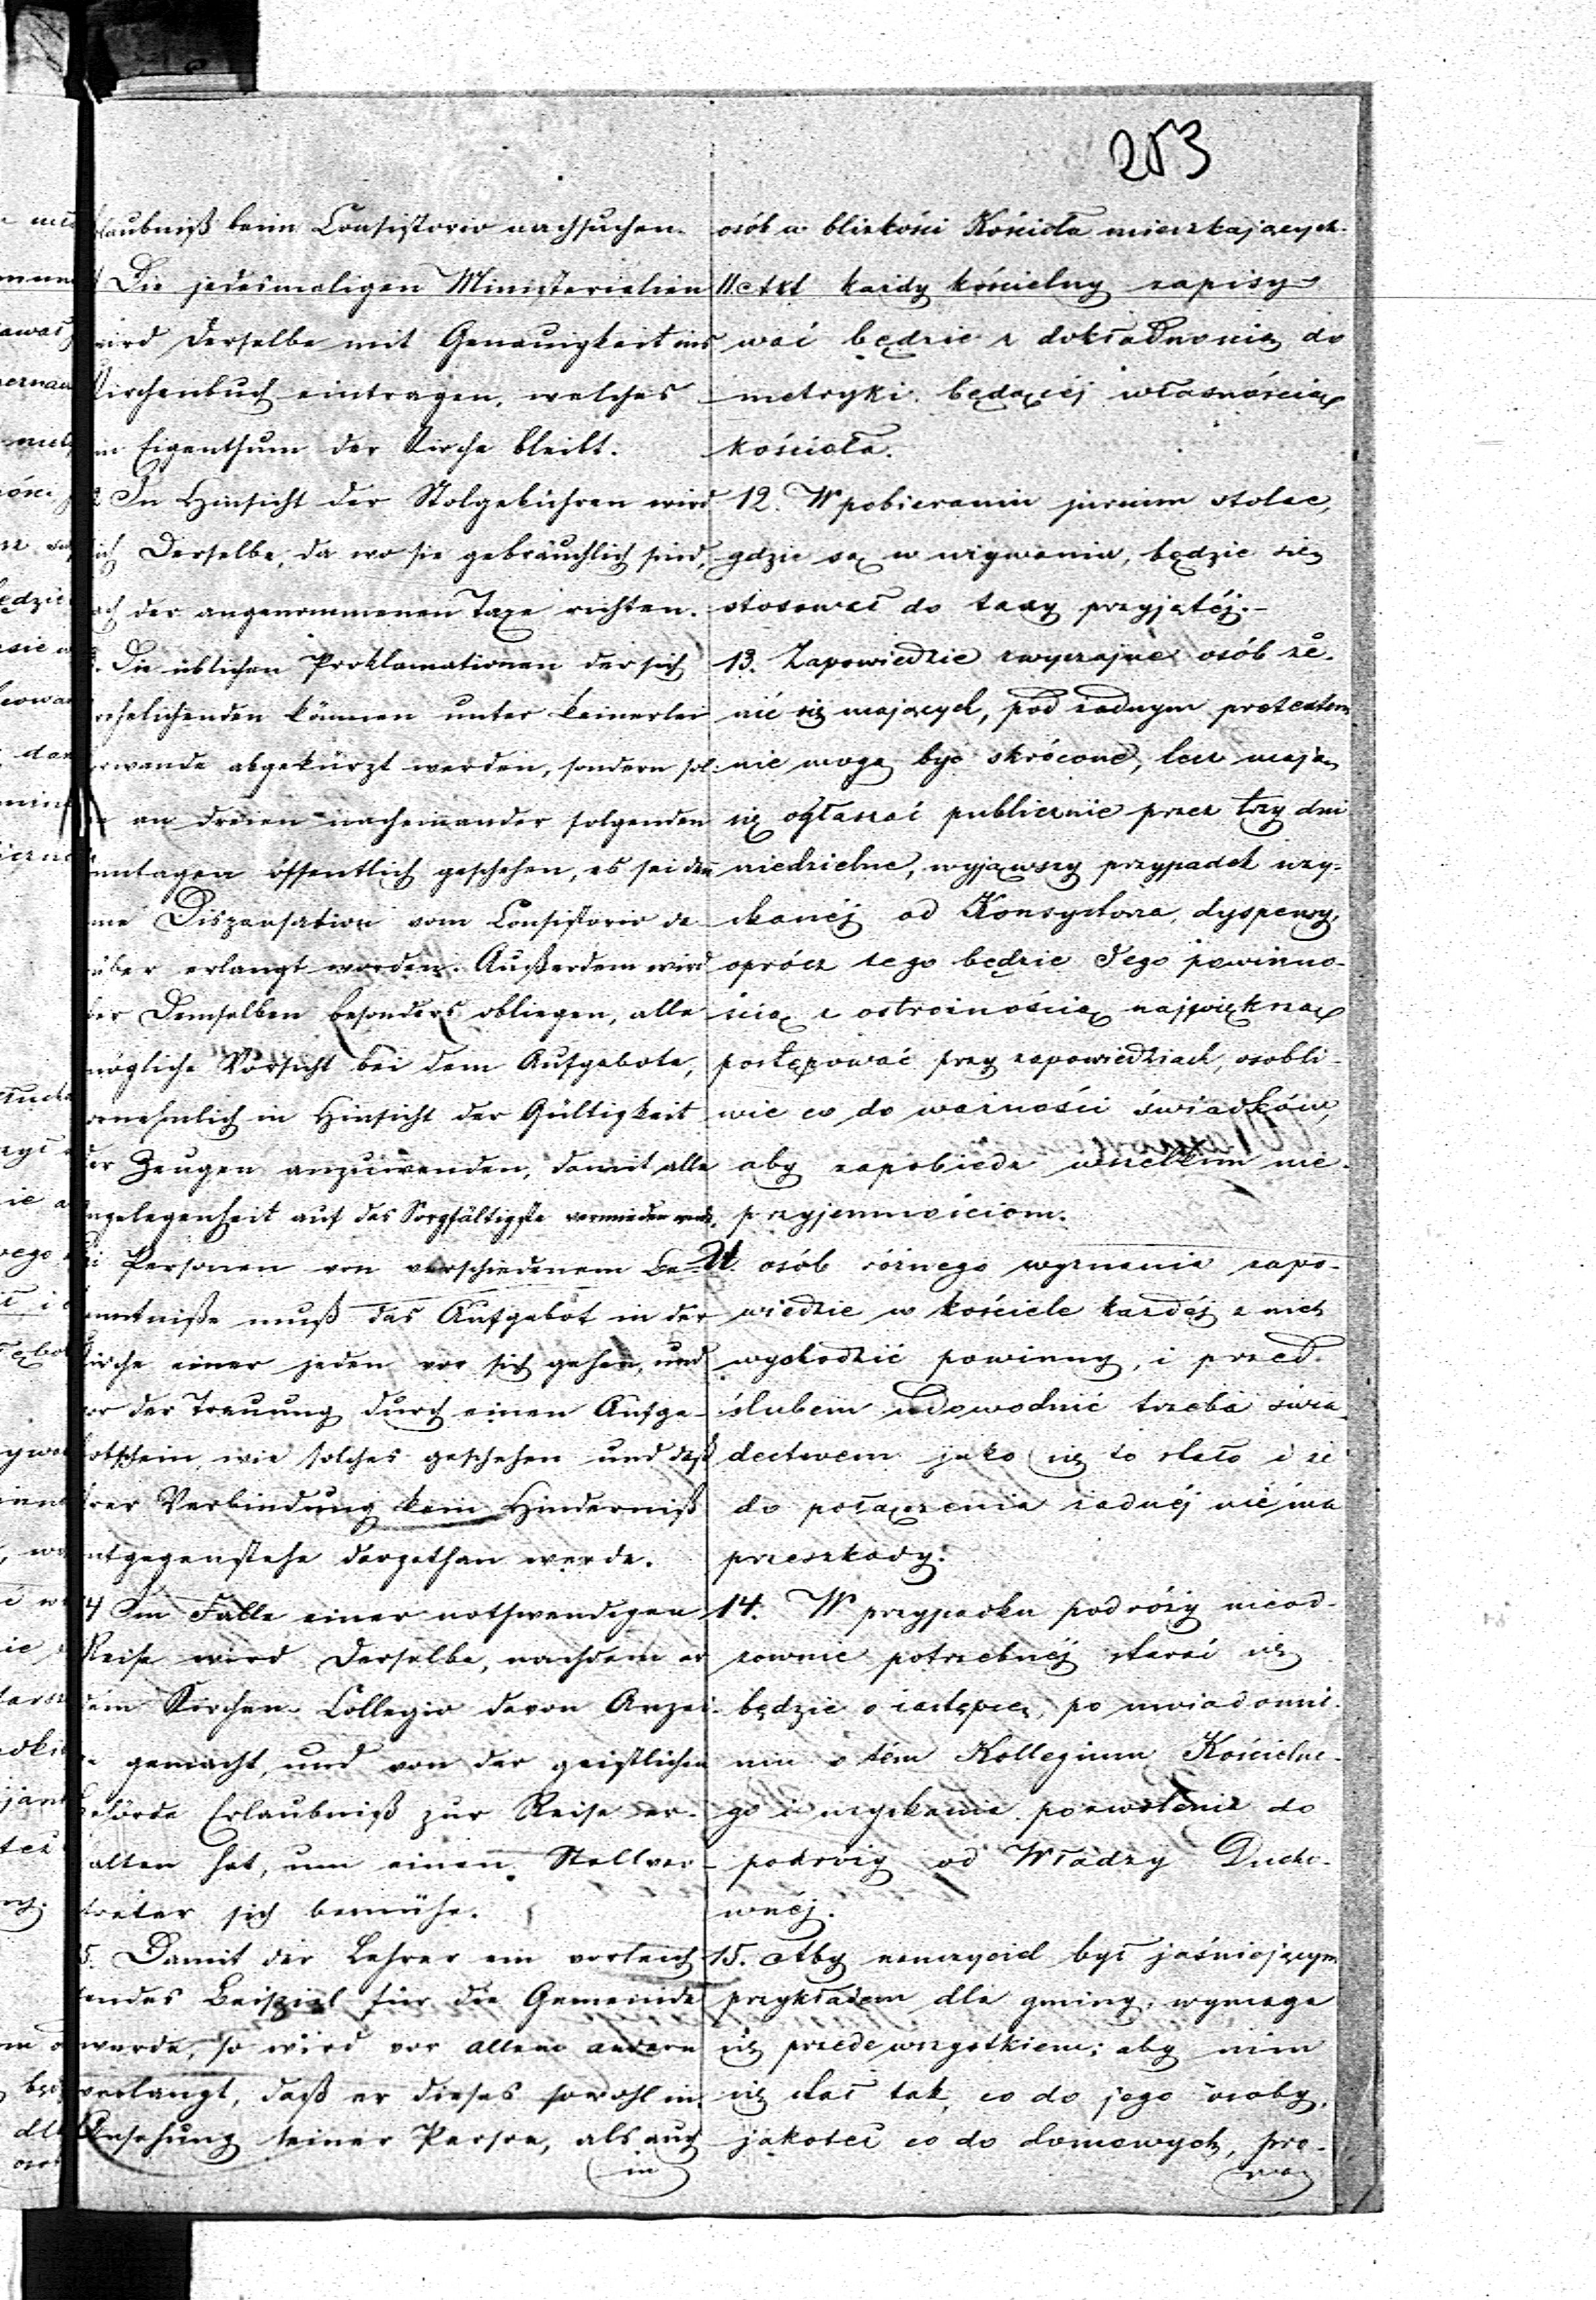 253
laubniß beim Consistorio nachsuchen.
Die jedesmaligen Ministerialien
wird derselbe mit Genauigkeit ins
Kirchenbuch eintragen, welches
ein Eigenthum der Kirche bleibt.
In Hinsicht der Stolgebühren wird
sich Derselbe, da wo sie gebräuchlich sind,
nach der angenommenen Taxe richten.
Die üblichen Proklamationen der sich
verehelichenden können unter keinerlei
Vorwande abgekürzt werden, sondern sol-
len an dreien nacheinander folgenden
Sonntagen öffentlich geschehen, es sei denn
eine Dispensation vom Consistorio da-
rüber erlangt worden. Außerdem wird
aber Demselben besonders obliegen, alle
mögliche Vorsicht bei dem Aufgebote,
vornehmlich in Hinsicht der Gültigkeit
der Zeugen anzuwenden, damit alle
Ungelegenheit auf das Sorgfältigste vermieden werde.
Bei Personen von verschiedenem Be-
kenntniße muß das Aufgebot in der
Kirche einer jeden vor sich gehen, und
vor der Trauung durch einen Aufge-
botschein, wie solches geschehen und daß
ihrer Verbindung kein Hinderniß
entgegenstehe dargethan werde.
14 Im Falle einer nothwendigen
Reise wird Derselbe, nachdem er
dem Kirchen-Collegio davon Anzei-
ge gemacht, und von der geistlichen
Behörde Erlaubniß zur Reise er-
halten hat, um einen Stellver-
treter sich bemühe.
15. Damit der Lehrer ein vorleuch-
tendes Beispiel für die Gemeinde
werde, so wird vor allem andern
verlangt, daß er dieses sowohl in
Ansehung seiner Person, als auch
in
osób w blizkości Kościoła mieszkających.
11. Akt każdy kościelny zapisy-
wać będzie z dokładnością do
metryki będącéj własnością
kościoła.
12. W pobieraniu jurium stolae,
gdzie są w używaniu, będzie się
stosował do taxy przyjętéj.-
13. Zapowiedzie zwyczajne osób że-
nić się mających, pod żadnym pretextem
nie mogą być skrócone, lecz mają
się ogłaszać publicznie przez trzy dni
niedzielne, wyjąwszy przypadek uzy-
skanéj od Konsystorza, dyspensy,
oprócz tego będzie Jego powinno-
ścią z ostrożnością największą
postępować przy zapowiedziach, osobli-
wie co do ważności świadków,
aby zapobiedz wszelkim nie-
przyjemnościom.
U osób różnego wyznania zapo-
wiedzie w kościele każdéj z nich
wychodzić powinny, i przed
ślubem udowodnić trzeba świa-
dectwem jako się to stało i że
do połączenia żadnéj nié ma
przeszkody.
14. W przypadku podróży nieod-
zownie potrzebnéj starać się
będzie o zastępcę, po uwiadomie-
niu o tém Kollegium Kościelne-
go i uzyskania pozwolenia do
podróży od Władzy Ducho-
wnéj.
15. Aby nauczyciel był jaśniejącym
przykładem dla gminy, wymaga
się przedewszystkiem; aby nim
się stał tak, co do jego osoby,
jakoteż co do domowych, pro-